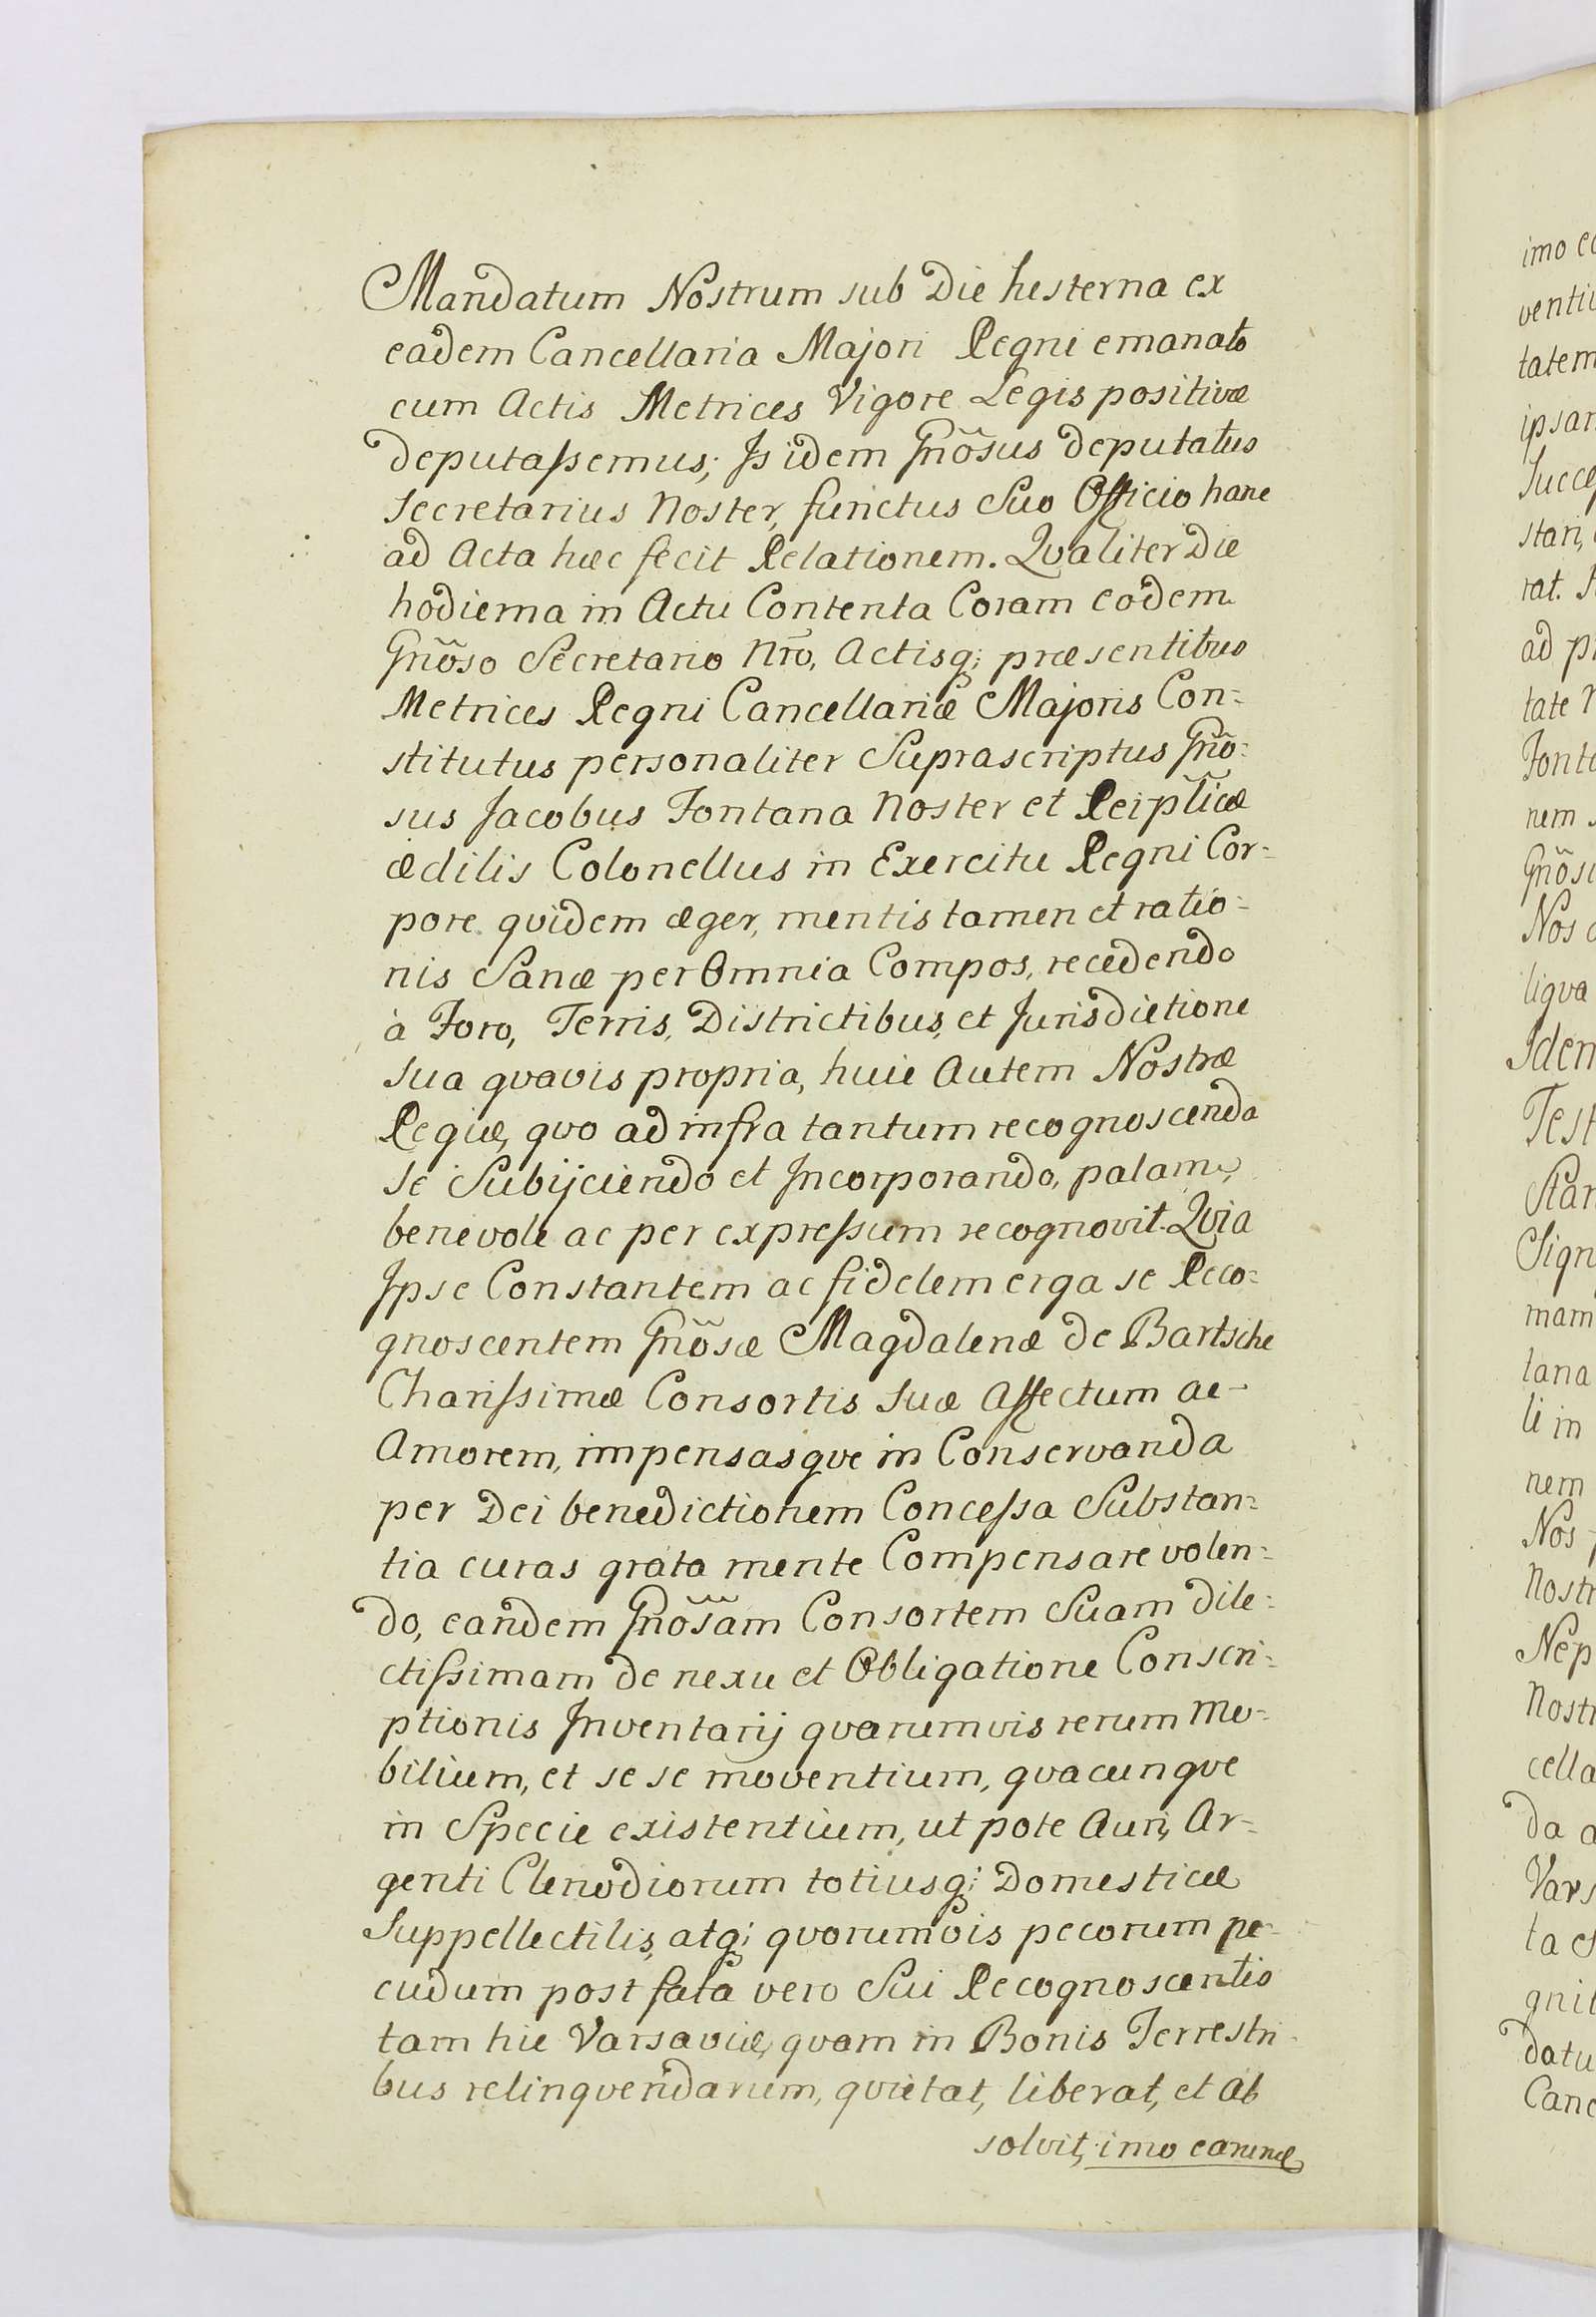 Mandatum Nostrum sub Die hesterna ex
eadem Cancellaria Majori Regni emanato
cum Actis Metrices Vigore Legis positivæ
deputassemus; Is idem Gnõsus deputatus
Secretarius Noster, functus Suo Officio hanc
ad Acta hæc fecit Relationem. Qvaliter Die
hodierna in Actu Contenta Coram eodem
Gnõso Secretario Nrõ, Actisq; præsentibus
Metrices Regni Cancellariæ Majoris Con=
stitutus personaliter Suprascriptus Gnõ=
sus Jacobus Fontana Noster et Reiplicæ
ædilis Colonellus in Exercitu Regni Cor=
pore qvidem æger, mentis tamen et ratio=
nis Sanæ per Omnia Compos, recedendo
à Foro, Terris, Districtibus, et Jurisdictione
Sua qvavis propria, huic Autem Nostræ
Regiæ, qvo ad infra tantum recognoscenda
Se Subijciendo et Incorporando, palam,
benevole ac per expressum recognovit. Qvia
Ipse Constantem ac fidelem erga se Reco=
gnoscentem Gnõsæ Magdalenæ de Bartsche
Charissimæ Consortis Suæ Affectum ac
Amorem, impensasqve in Conservanda
per Dei benedictionem Concessa Substan=
tia curas grata mente Compensare volen=
do, eandem Gnõsam Consortem Suam dile=
ctissimam de nexu et Obligatione Conscri=
ptionis Inventarij qvarumvis rerum Mo=
bilium, et se se moventium, qvacunqve
in Specie existentium, ut pote Auri, Ar=
genti Clenodiorum totiusq; Domesticæ
Suppellectilis, atq; qvorumvis pecorum pe=
cudum post fata vero Sui Recognoscentis
tam hic Varsaviæ, qvam in Bonis Terrestri=
bus relinqvendarum, qvietat, liberat, et Ab
solvit, imo earumd
imo
tatem
stari,
rat.
ad
tate
nem
Nos
liqva
mam
lana
li in
nem
Nos
da